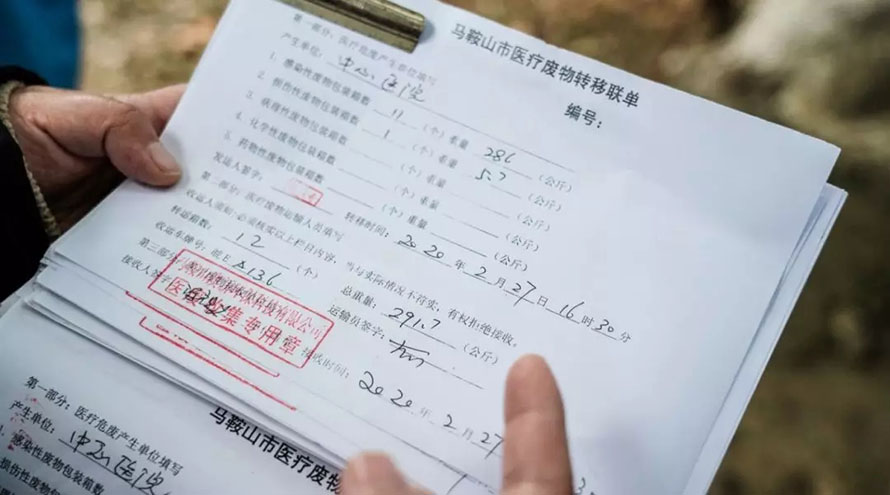 马鞍山市医疗废物转移联单
编号：
第一部分：医疗危废产生单位填写
产生单位：中心医院
1. 感染性废物包装箱数 11 (个) 重量 286 (公斤)
2. 损伤性废物包装箱数 1 (个) 重量 5.7 (公斤)
3. 病理性废物包装箱数 (个) 重量 (公斤)
4. 化学性废物包装箱数 (个) 重量 (公斤)
5. 药物性废物包装箱数 (个) 重量 (公斤)
发运人签字： 转移时间：2020年2月27日16时30分
第二部分：医疗废物运输人员填写
收运人须知：必须核实以上栏目内容，当与实际情况不符实，有权拒绝接收。
转运箱数：12 (个) 总重量：291.7 (公斤)
收运车牌号：皖E A136 运输员签字：
第三部分
接收人签字 接收时间：2020年2月27
环保科技有限公司
医 集专用章
马鞍山市医疗废物
第一部分：医疗危废产生单位填写
产生单位：中心医院
1. 感染性废物包装箱数
损伤性废物包装箱